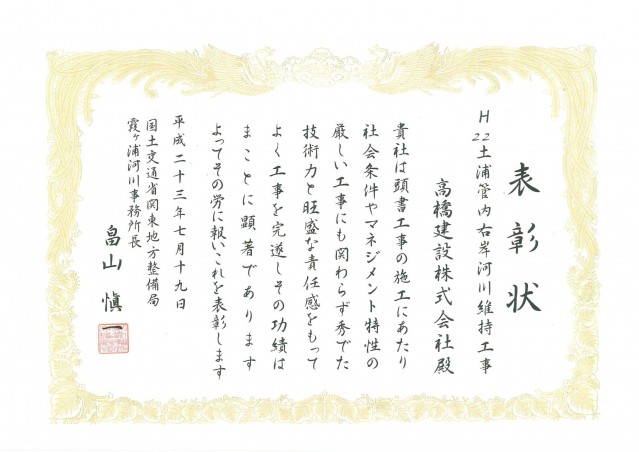 表彰状
H22土浦管内右岸河川維持工事
高橋建設株式会社殿
貴社は頭書工事の施工にあたり
社会条件やマネジメント特性の
厳しい工事にも関わらず秀でた
技術力と旺盛な責任感をもって
よく工事を完遂しその功績は
まことに顕著であります
よってその労に報いこれを表彰します
平成二十三年七月十九日
国土交通省関東地方整備局
霞ヶ浦河川事務所長
畠山愼一